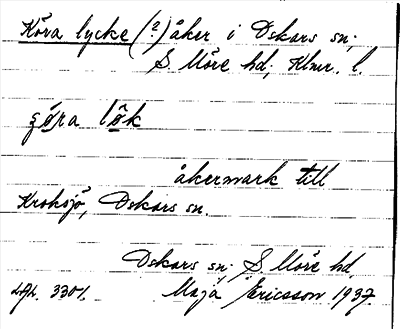 Köra lycke (?) åker i Oskars sn;
S. Möre hd; Klmr. l.
åkermark till
Kroksjö, Oskars sn.
Oskars sn; S. Möre hd,
3301. Maja Ericsson 1937.